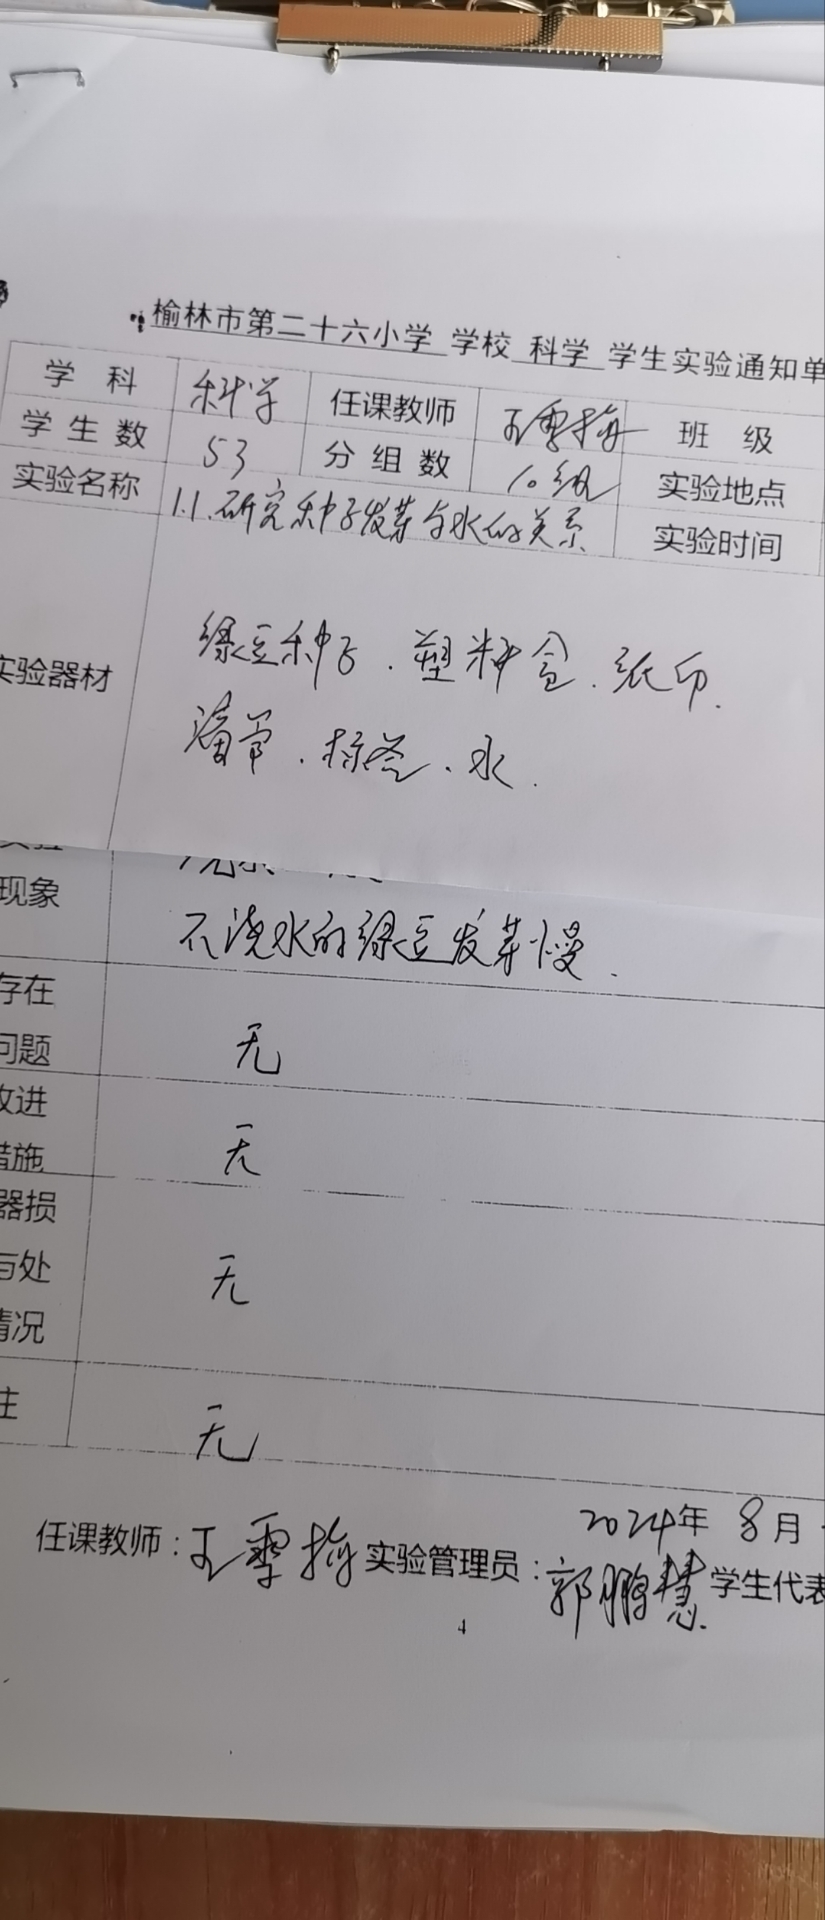 榆林市第二十六小学 学校 科学 学生实验通知单
学 科 科学 任课教师 王雪梅 班 级
学 生 数 53 分 组 数 10组 实验地点
实验名称 1.1.研究种子发芽与水的关系 实验时间
实验器材 绿豆种子.塑料盒.纸巾.
滴管.标签.水.
现象 不浇水的绿豆发芽慢.
存在
问题 无
改进
措施 无
器损
与处 无
情况
注 无
2024年 8月
任课教师:王雪梅 实验管理员:郭鹏慧 学生代表
4